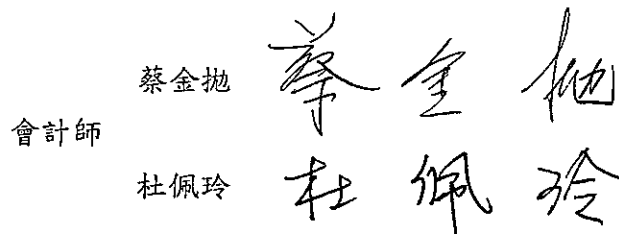 蔡金拋 蔡金拋
會計師
杜佩玲 杜佩玲